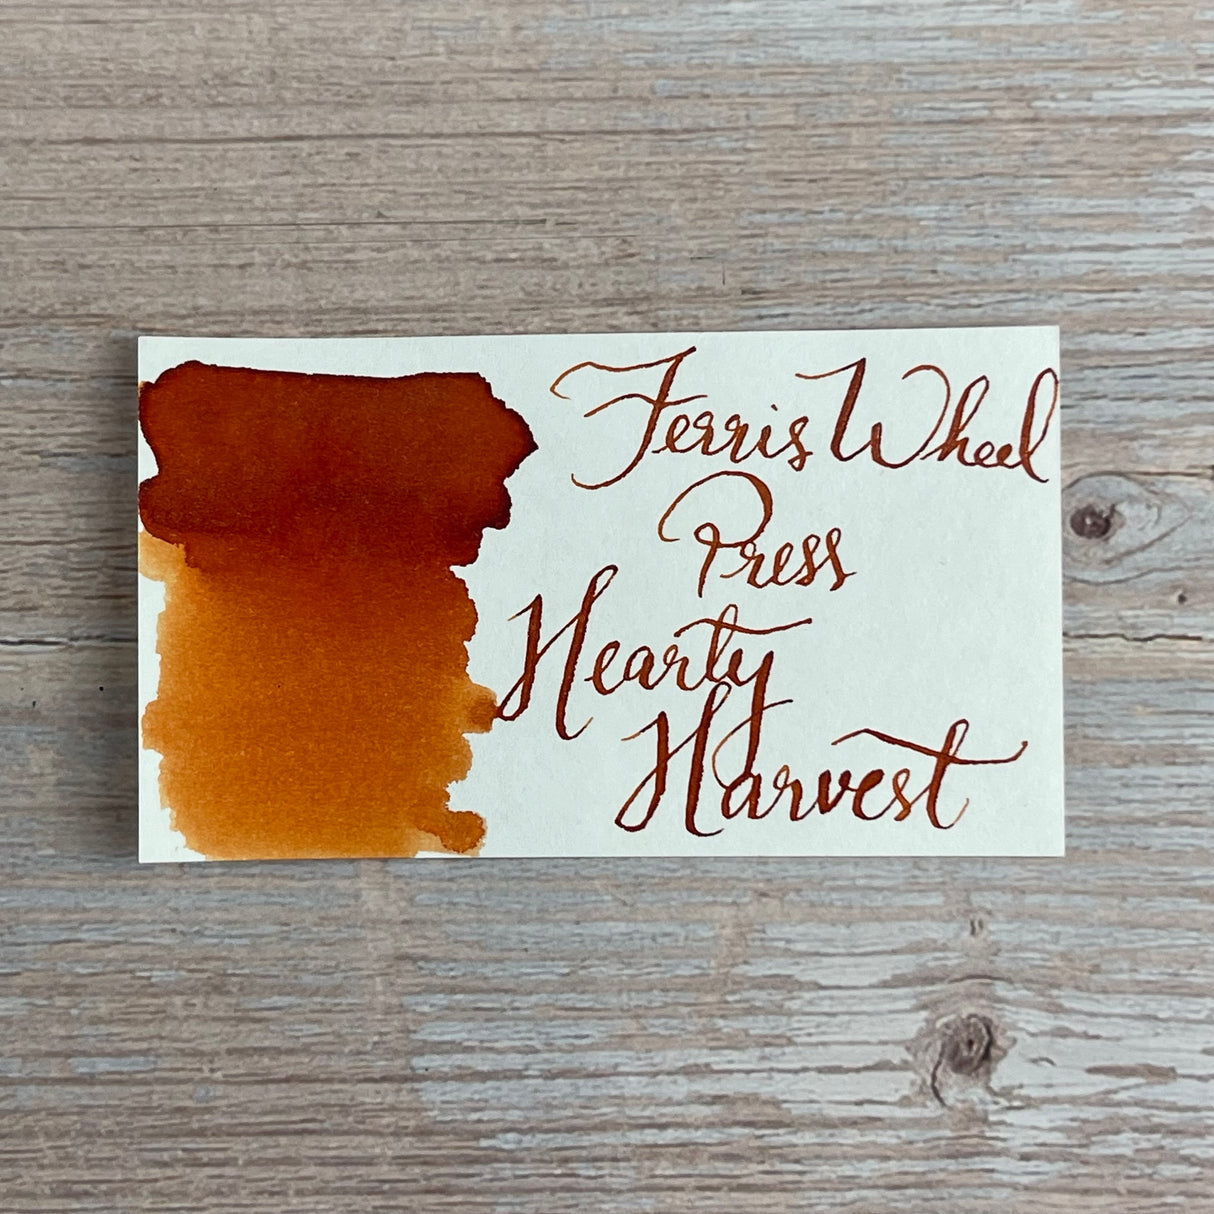 Ferris Wheel
Press
Hearty
Harvest